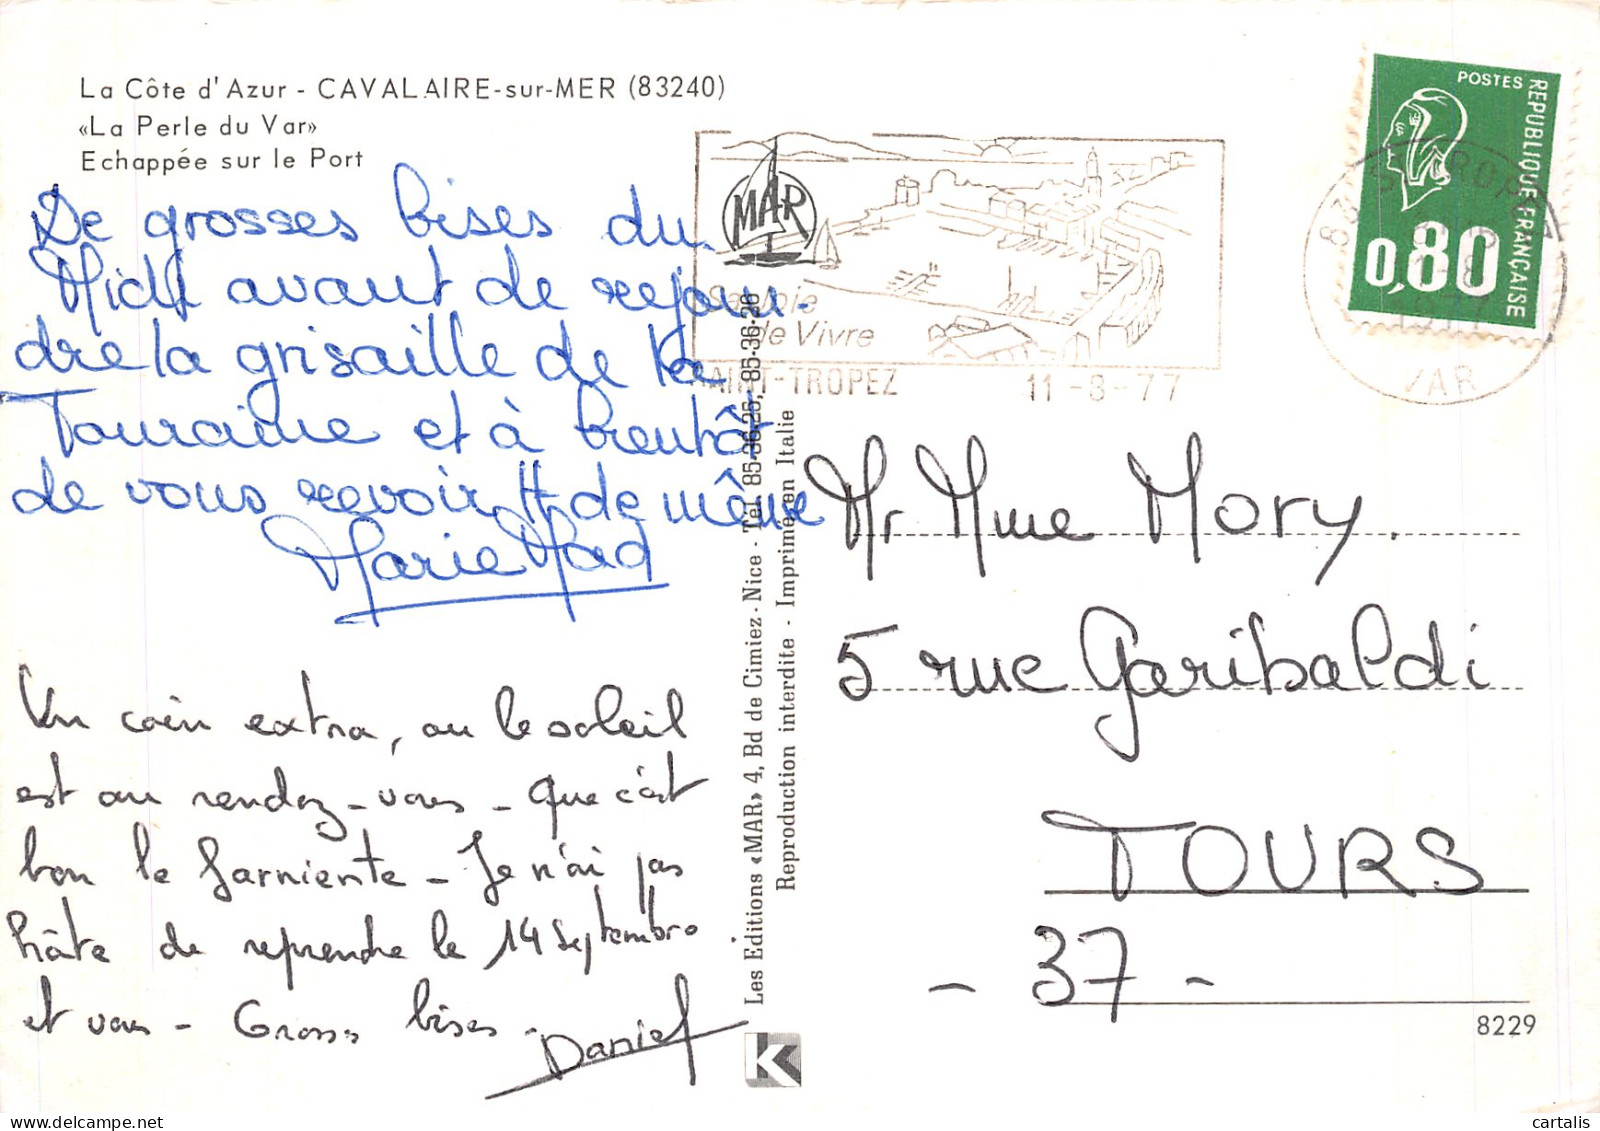 La Côte d'Azur - CAVALAIRE-sur-MER (83240)
«La Perle du Var»
Echappée sur le Port
De grosses bises du
Midi avant de rejoin-
dre la grisaille de la
Touraine et à bientôt
de vous revoir tt de même
Marie Mad
Un coin extra, ou le soleil
est au rendez-vous - Que c'est
bon le farniente - Je n'ai pas
hâte de reprendre le 14 Septembre
et vous - Grosses bises -
Daniel
Les Editions «MAR» 4, Bd de Cimiez - Nice - Tél. 85-36-25, 85-36-26
Reproduction interdite - Imprimé en Italie
K
MAR
Sa Joie
de Vivre
SAINT-TROPEZ 11-8-77
POSTES
REPUBLIQUE FRANÇAISE
0,80
83 ST TROPEZ
VAR
1977
Mr Mme Mory.
5 rue Garibaldi
TOURS
- 37 -
8229
cartalis